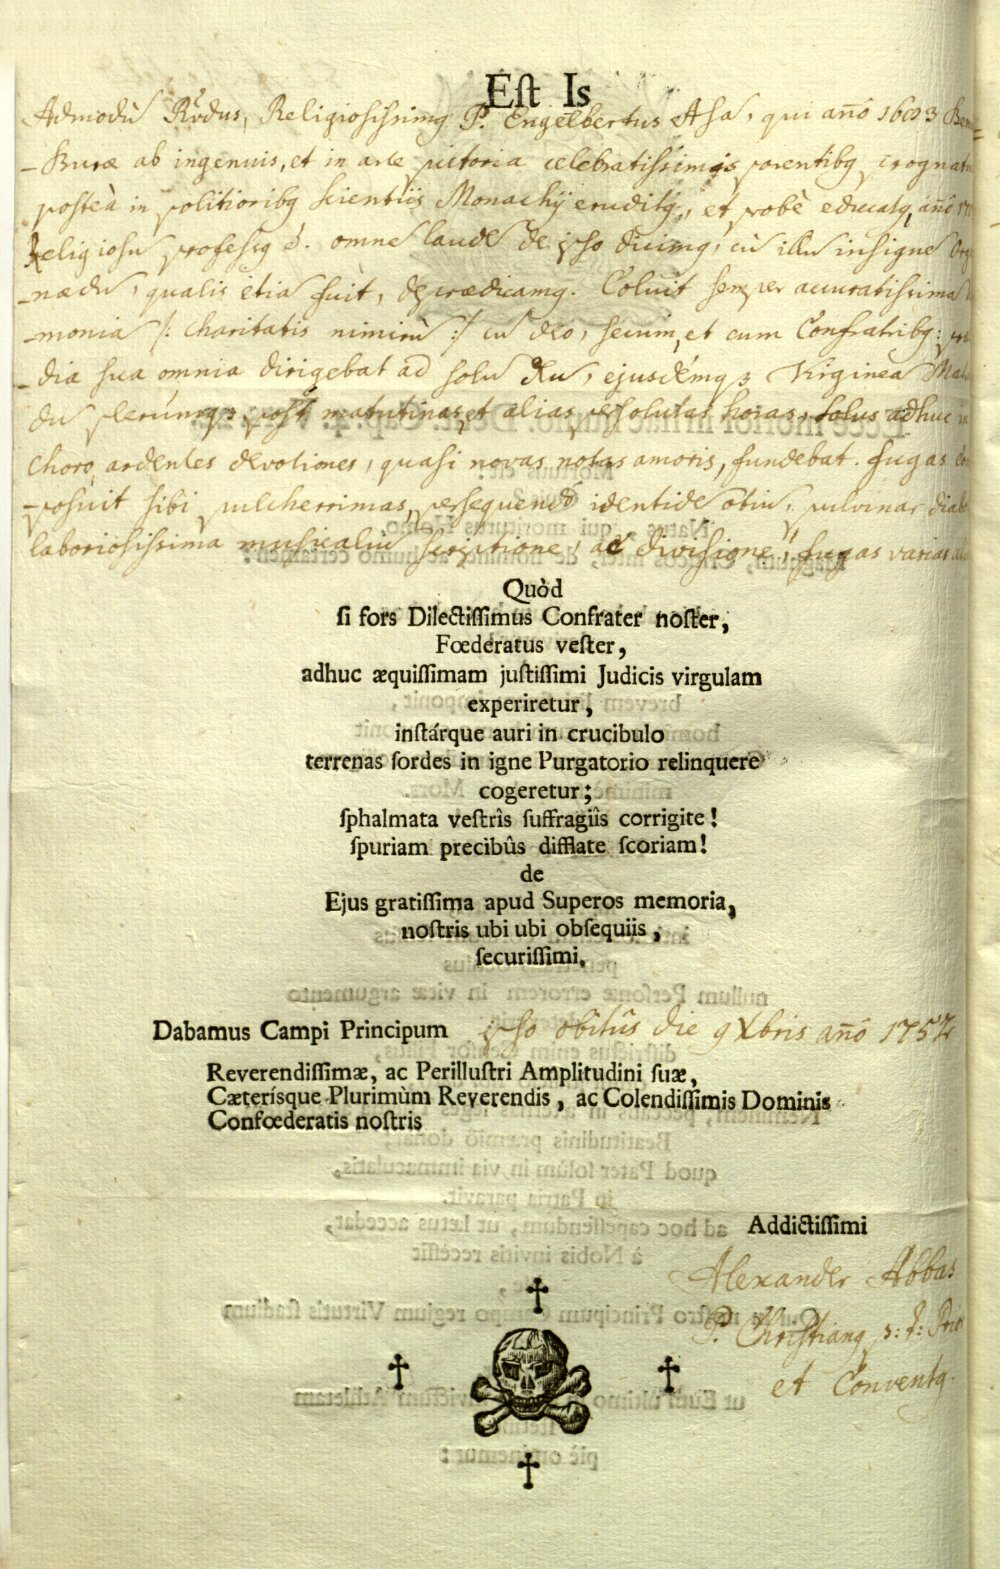 Est Is
Admodū Rv̄dus, Religiosissimq P. Engelbertus Asa, qui año 1693
Buræ ab ingenuis, et in arte pictoria celebratissimis parentibq
posteà in politioribq scientiis Monachij eruditq, et probè educatq, año
Religiosū professq ē. omne laudē de ipso dicimq, cū illū insignē
nædū, qualis etiā fuit, deprædicamq. Coluit semper accuratissima
monia /: Charitatis nimirū :/ cū deo, secum, et cum Confratribq:
dia sua omnia dirigebat ad solū Xū, ejusdémq3 Virginea
dū plerúmq3 post matutinas, et alias persolutas horas, solus adhuc in
Choro ardentes devotiones, quasi novas notas amoris, fundebat. fugas
posuit sibi pulcherrimas, persequendo identidē otiū, pulvinar
laboriosissima musicaliū scriptione, ac divisione, fugas varias
Quòd
ſi fors Dilectiſſimus Confrater noſter,
Fœderatus veſter,
adhuc æquiſſimam juſtiſſimi Judicis virgulam
experiretur,
inſtárque auri in crucibulo
terrenas ſordes in igne Purgatorio relinquere
cogeretur;
ſphalmata veſtrîs ſuffragiîs corrigite!
ſpuriam precibûs difflate ſcoriam!
de
Ejus gratiſſima apud Superos memoria,
noſtris ubi ubi obſequiis,
ſecuriſſimi.
Dabamus Campi Principum ipso obitûs die 9 Xbris añō 1752
Reverendiſſimæ, ac Perilluſtri Amplitudini ſuæ,
Cæterísque Plurimùm Reverendis, ac Colendiſſimis Dominis
Confœderatis noſtris
Addictiſſimi
Alexander Abbas
P. Christianq p: t: Prior
et Conventq.